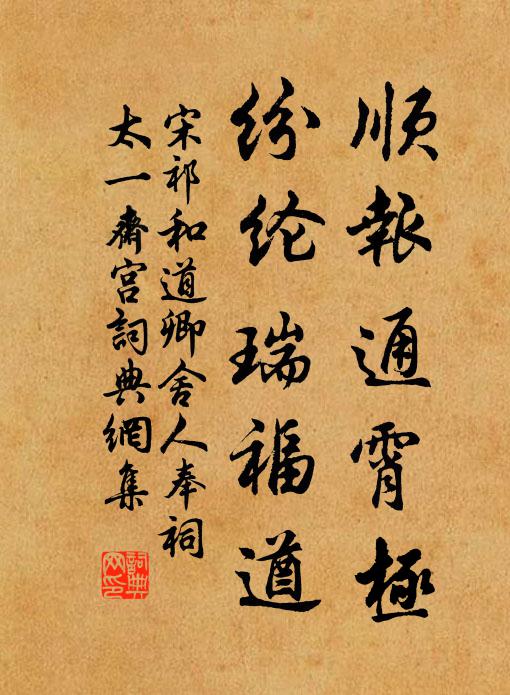 順報通霄極
紛纶瑞福遒
宋祁和道卿舍人奉祠
太一齋宫詞典網集
詞典網印